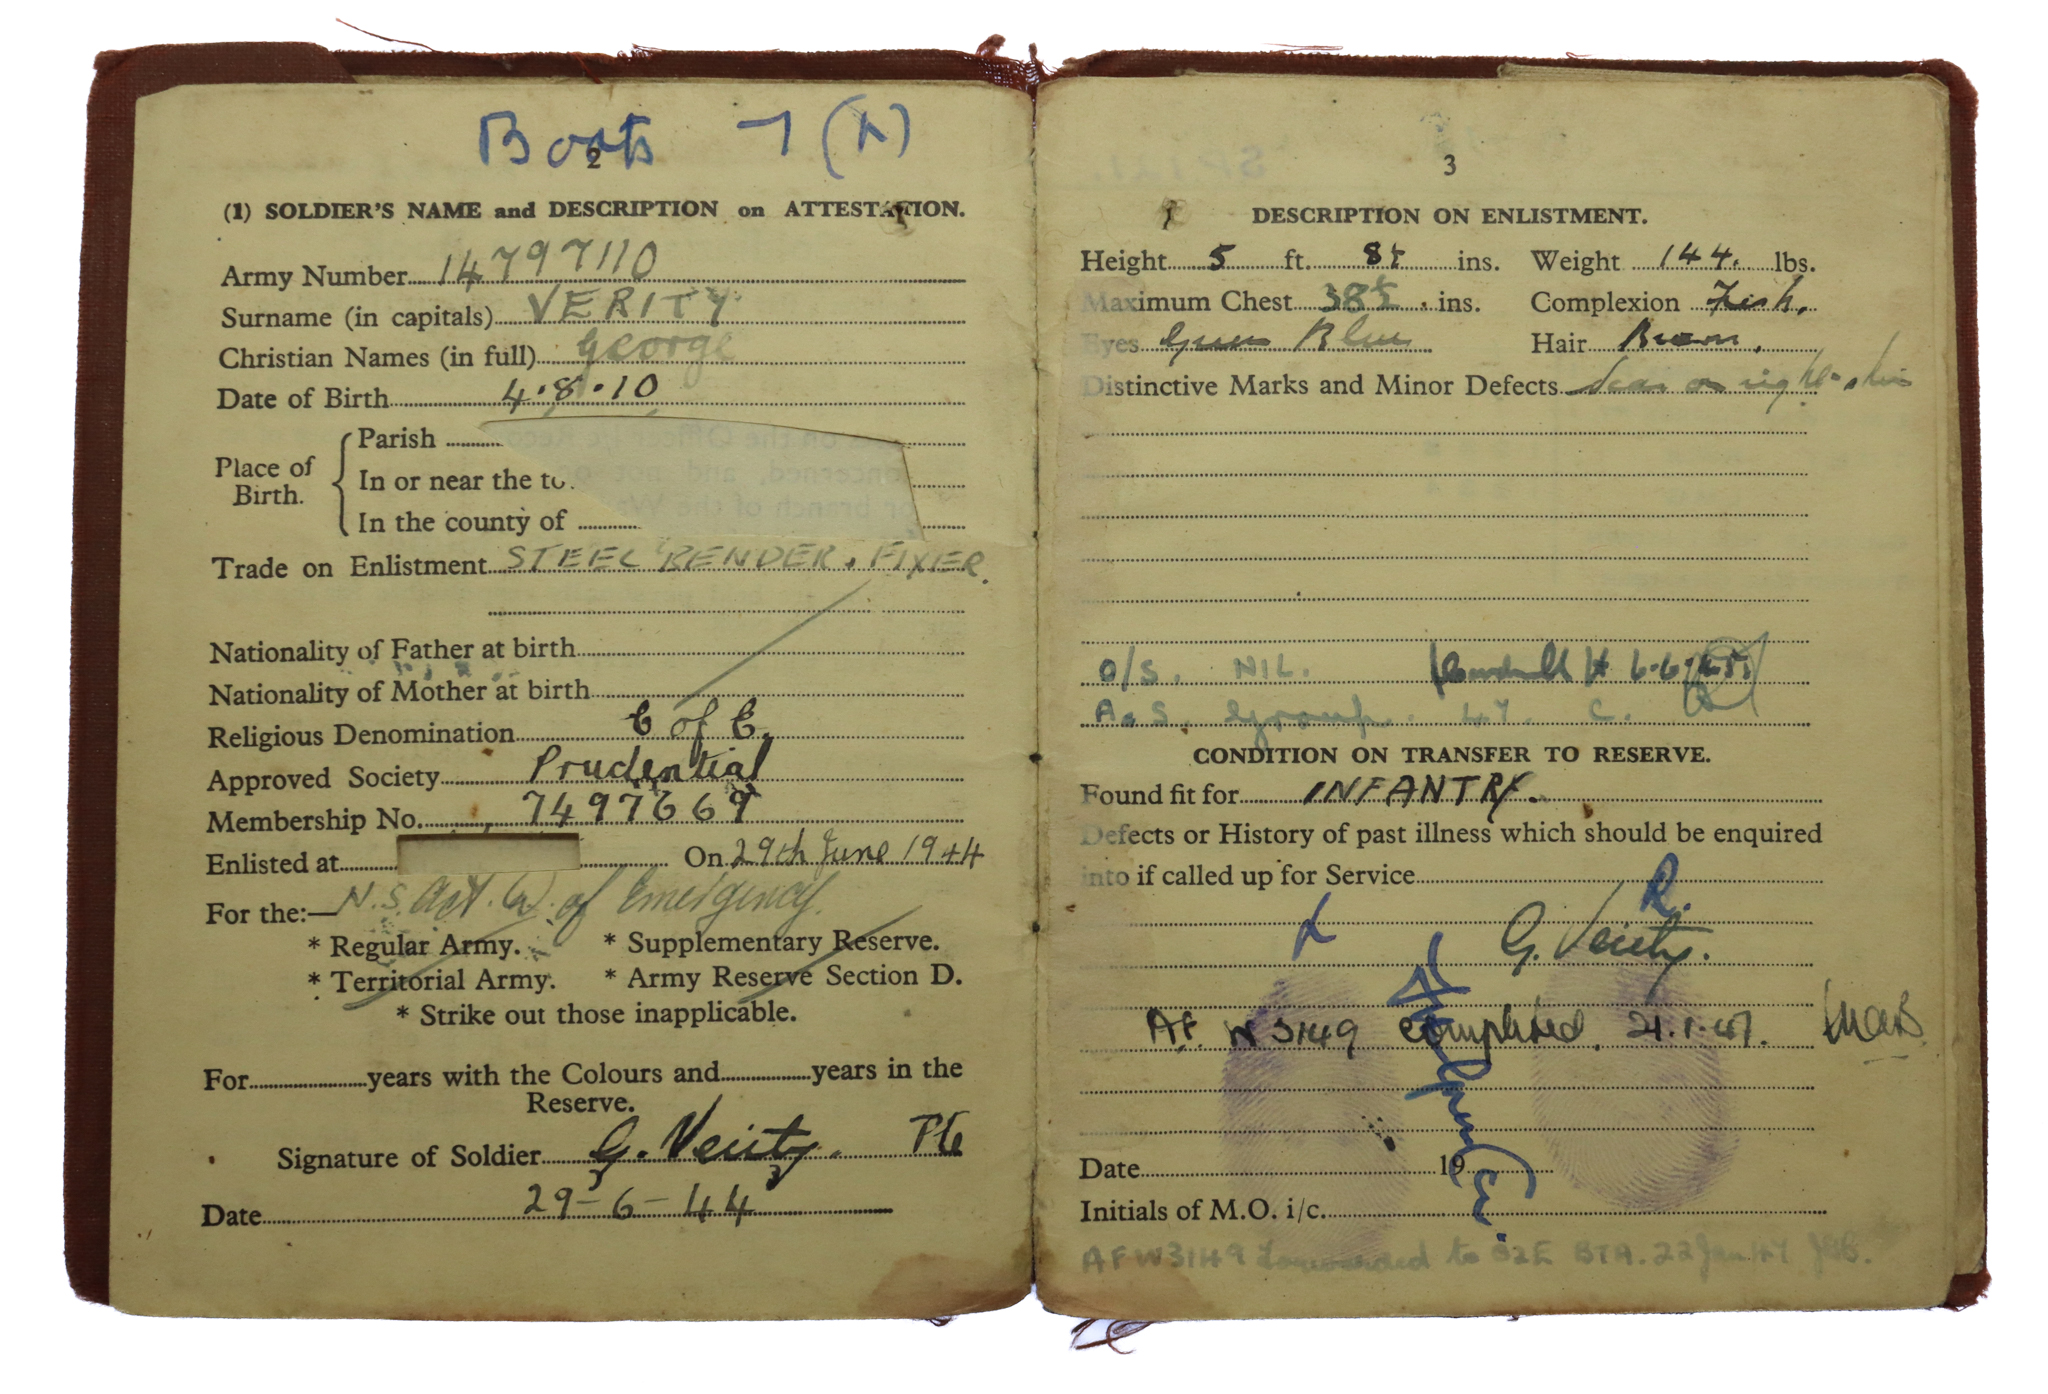 Boots 7 (L)
2
(1) SOLDIER'S NAME and DESCRIPTION on ATTESTATION.
Army Number 14797110
Surname (in capitals) VERITY
Christian Names (in full) George
Date of Birth 4.8.10
Place of Birth.
Parish
In or near the to
In the county of
on the Officer i/c Reco
oncerned, and not
or branch of the Wa
Trade on Enlistment STEEL BENDER. FIXER.
Nationality of Father at birth
Nationality of Mother at birth
Religious Denomination C of E.
Approved Society Prudential
Membership No. 7497669
Enlisted at On 29th June 1944
For the:— N.S. Act. of Emergency.
* Regular Army. * Supplementary Reserve.
* Territorial Army. * Army Reserve Section D.
* Strike out those inapplicable.
For years with the Colours and years in the
Reserve.
Signature of Soldier G. Verity. Pte
Date 29-6-44
3
DESCRIPTION ON ENLISTMENT.
Height 5 ft. 8½ ins. Weight 144. lbs.
Maximum Chest 38½ ins. Complexion Fresh.
Eyes Green Blue Hair Brown.
Distinctive Marks and Minor Defects Scar on right shin
O/S. NIL. 6.6.45.
A.S. Group. 47. C.
CONDITION ON TRANSFER TO RESERVE.
Found fit for INFANTRY.
Defects or History of past illness which should be enquired
into if called up for Service
L R.
G. Verity.
AF. W3149 completed. 21.1.47.
Date 19
Initials of M.O. i/c.
AFW3149 forwarded to O2E BTA. 22 Jan 47